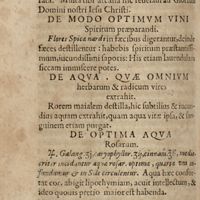 Domini nostri Iesu Christi.
DE MODO OPTIMVM VINI
Spiritum præparandi.
Flores Spicæ nardi in fæcibus digerantur, deinde
fæces destillentur: habebis spiritum præstantissi-
mum, iucundissimi saporis: His etiam lauendulam
siccam immiscere potes.
DE AQVA, QVÆ OMNIVM
herbarum & radicum vires
extrahit.
Rorem maialem destilla, hic subtilius & iucun-
dius aqua extrahit, quam aqua vitæ ipsa, & in-
guinem etiam purgat.
DE OPTIMA AQVA
Rosarum.
infundantur & in Sole circulentur. Aqua hæc condita-
tot, aqua abigit lipothymiam, acuit intellectum, &
ideo quouis pretio maior est habenda.